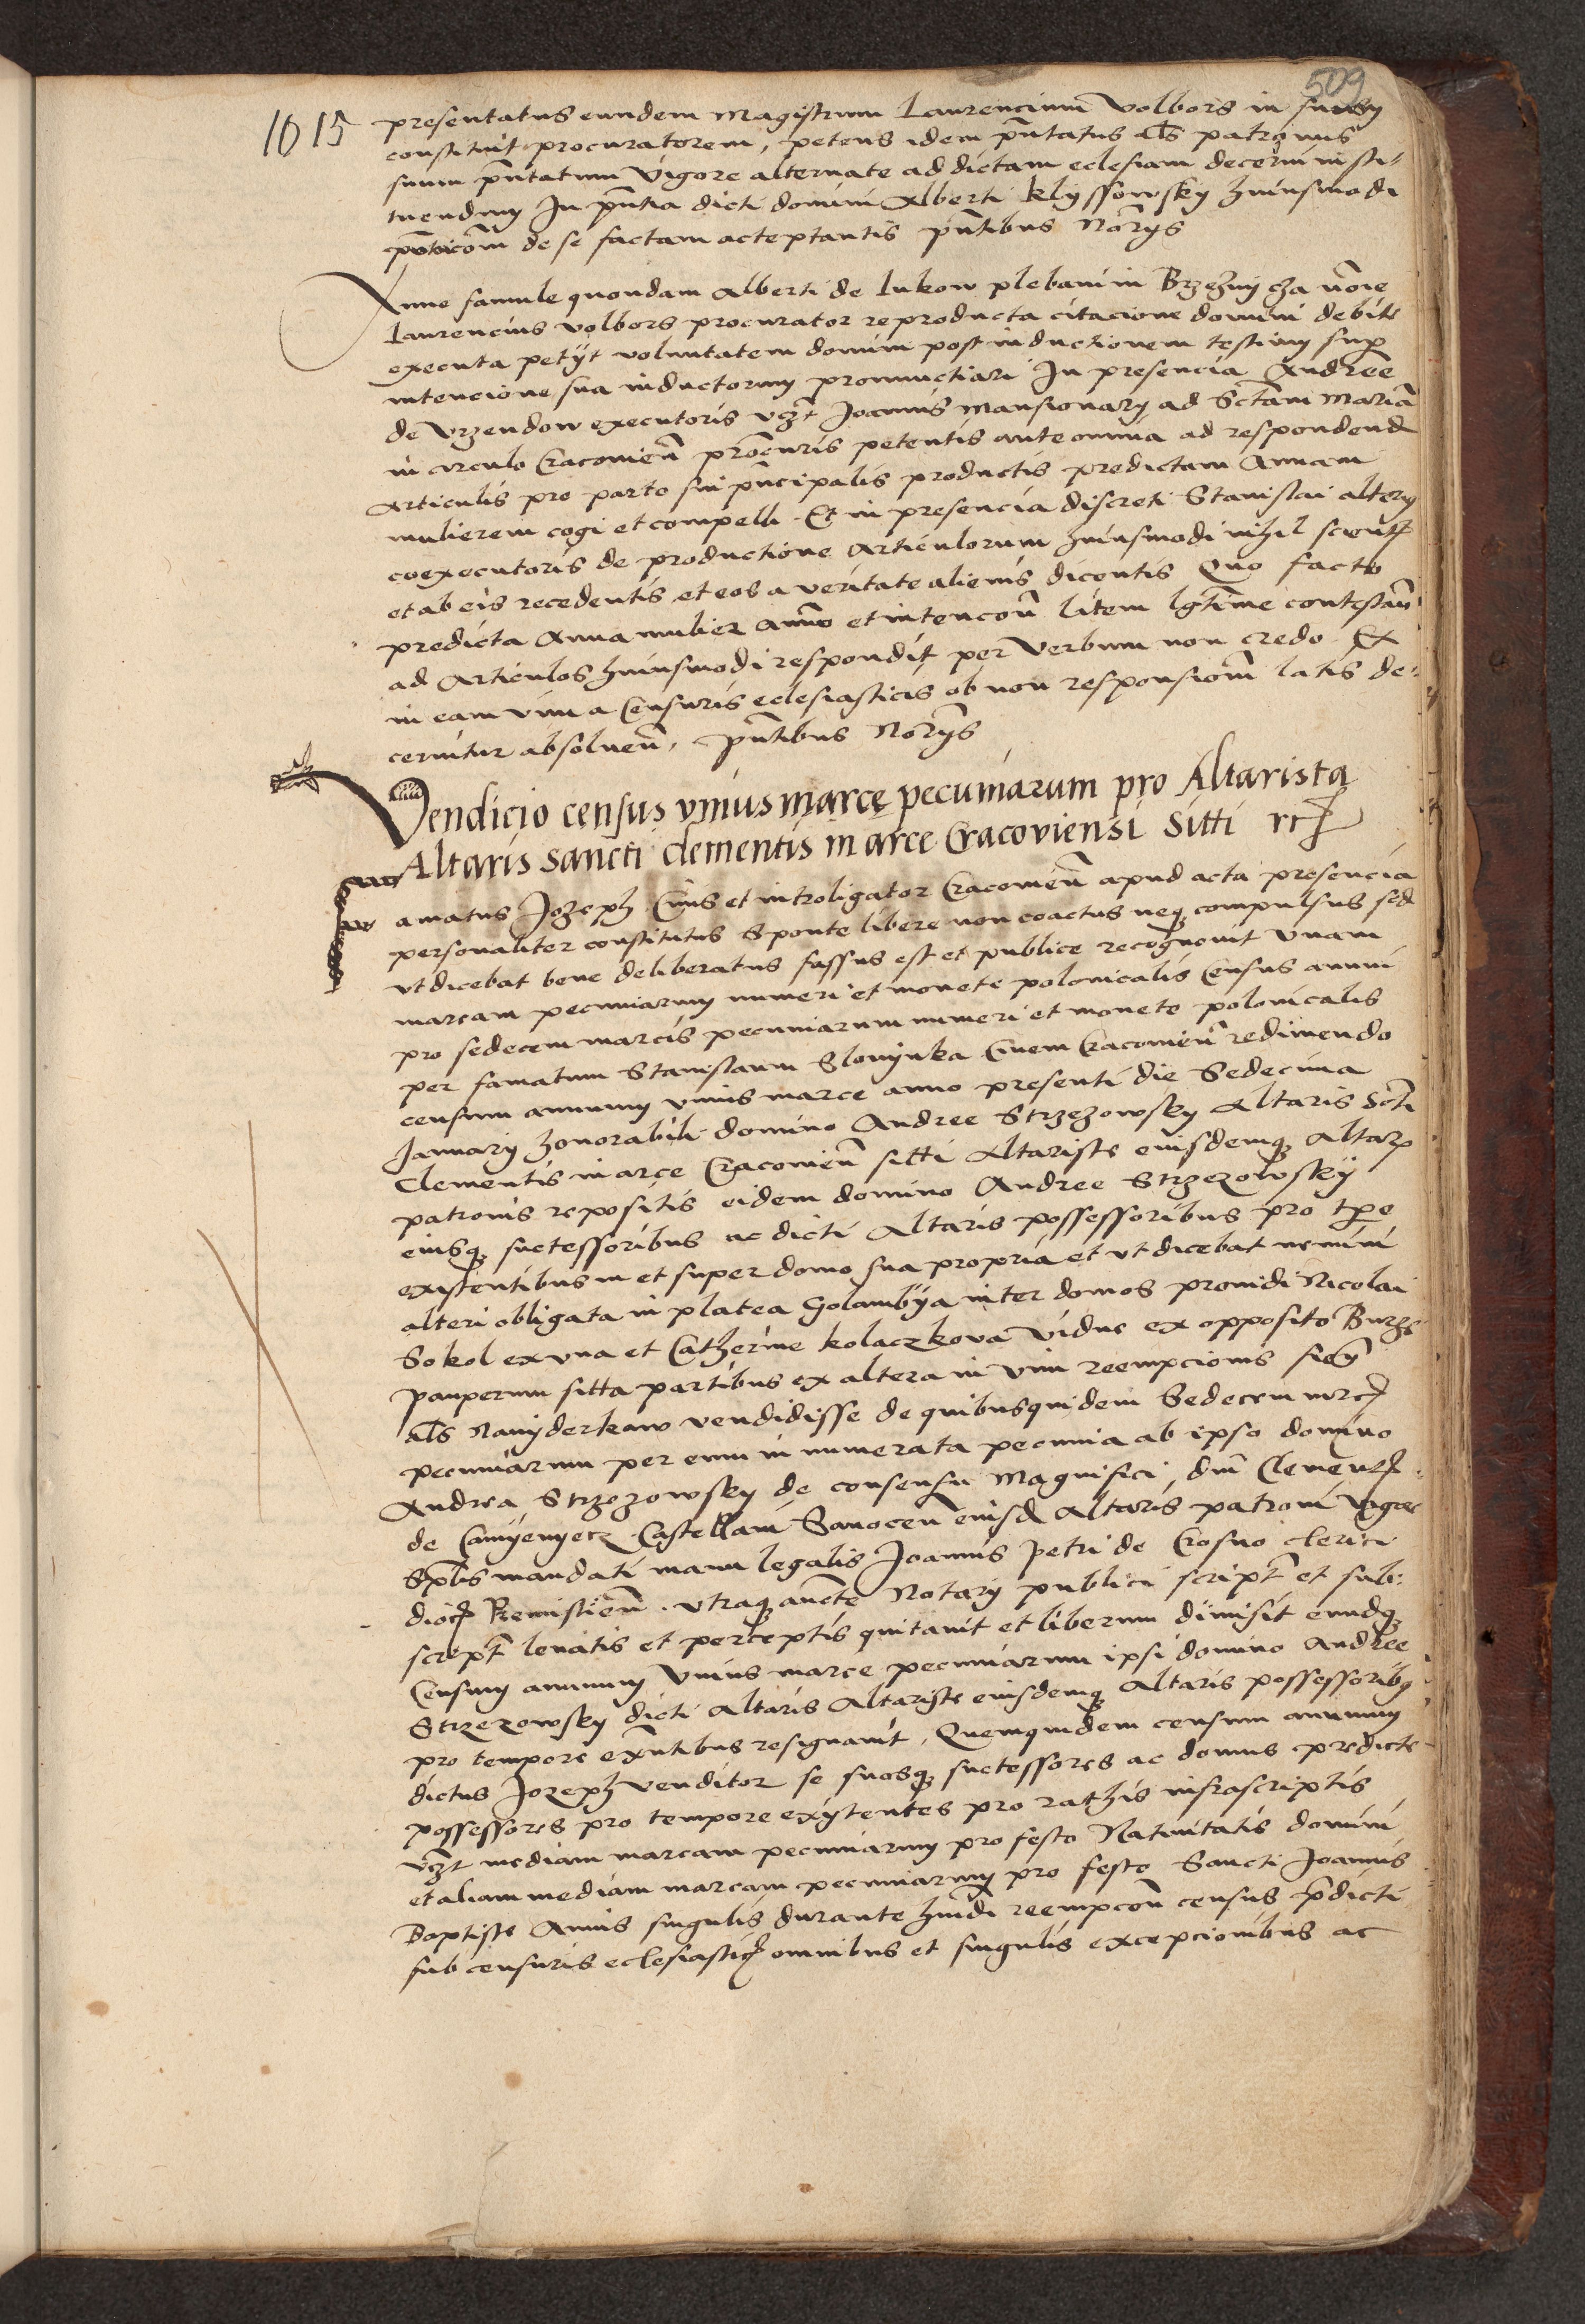 509
1015
presentatus eundem Magistrum Laurencium Volbors in suum
constituit procuratorem, petens idem pñtatus als patronus
suum pñtatum Vigore alternate ad dictam eclesiam decerni insti-
tuendum In pñtia dicti domini Alberti klyssowsky huiusmodi
de se factam acceptantis pñtibus Norijs
Anne famule quondam Alberti de lukow plebani in Brzeznycza nõie
Laurencius volbors procurator reproducta citacione domini debite
executa petyt voluntatem domini post inductionem testium sup
intencione sua inductorum pronunctiari In presencia Andree
de Vrzendow executoris vcz Joannis Mansionary ad Sctam Mariã
in circulo Cracovieñ procuris petentis ante omnia ad respondend
Articulis pro parte sui pñcipalis productis predictam Annam
mulierem cogi et compelli. Et in presencia discreti Stanislai alterius
coexecutoris de productione Articulorum huiusmodi nihil scient
et ab eis recedentis et eos a veritate alienis dicentis Quo facto
predicta Anna mulier animo et intencoñ litem lgtime contestañ
ad Articulos huiusmodi respondit per Verbum non credo Ex
in eam vim a Censuris eclesiasticis ob non responsiom latis de-
cernitur absolueñ, pñtibus Norijs
Vendicio census vnius marce pecuniarum pro Altarista
Altaris sancti clementis in arce Cracoviensi Sitti rc
Famatus Jozeph Ciuis et introligator Cracovieñ apud acta presencia
personaliter constitutus Sponte libere non coactus neq compulsus sed
vt dicebat bene deliberatus fassus est et publice recognouit vnam
marcam pecuniarum numeri et monete polonicalis Census annui
pro sedecem marcis pecuniarum numeri et monete polonicalis
per famatum Stanislaum Slomynka Ciuem Cracovieñ redimendo
censum annuum vnius marce anno presenti die Sedecima
January honorabili domino Andree Strzezowsky Altaris Scti
Clementis in arce Cracovieñ sitti Altariste eiusdemq altar
patronis repositis eidem domino Andree Strzezowsky
eiusq successoribus ac dicti Altaris possessoribus pro tpe
existentibus in et super domo sua propria et vt dicebat nemini
alteri obligata in platea Golambya inter domos prouidi Nicolai
Sokol ex vna et Catherine kolaczkova vidue ex opposito Burse
pauperum sitta partibus ex altera in vim reempcionis
als Nawyderkaw vendidisse de quibusquidem Sedecem mrc
pecuniarum per eum in numerata pecunia ab ipso domino
Andrea Strzezowsky de consensu Magnifici dni Clement
de Camyenyecz Castellani Sanoceñ eiusd Altaris patroni vigore
Splis mandati manu legalis Joannis Petri de Crosno clerici
dioc Premislieñ. vtraq aucte Notary publici script et sub-
script leuatis et perceptis quitauit et liberum dimisit eundq
Censum annuum Vnius marce pecuniarum ipsi domino Andree
Strzezowsky dicti Altaris Altariste eiusdemq Altaris possessoribq
pro tempore exñtibus resignauit. Quemquidem censum annuum
dictus Jozeph venditor se suosq successores ac domus predicte
possessores pro tempore existentes pro rathis infrascriptis
vczt mediam marcam pecuniarum pro festo Natiuitatis domini
et aliam mediam marcam pecuniarum pro festo Sancti Joannis
Baptiste Annis singulis durante hmdi reempcoñ census pdicti
sub censuris eclesiastic omnibus et singulis excepcionibus ac